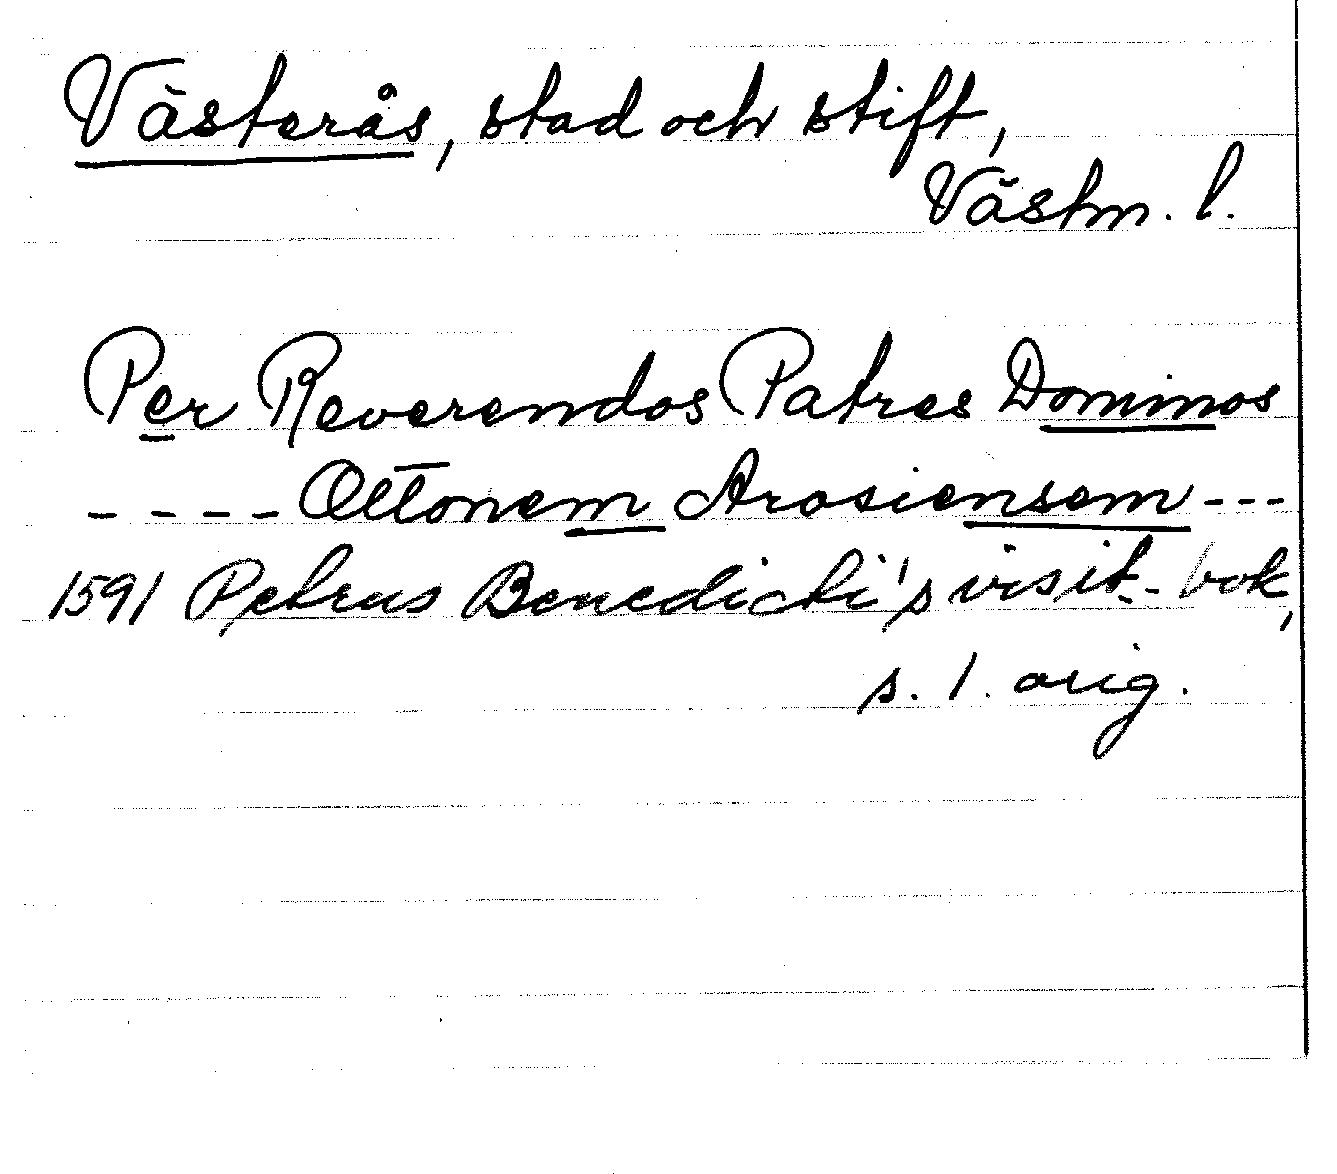 Västerås, stad och stift,
Västm. l.
Per Reverendos Patres Dominos
---- Ottonem Arosiensem ---
1591 Petrus Benedicti's visit.-bok,
s. 1. orig.